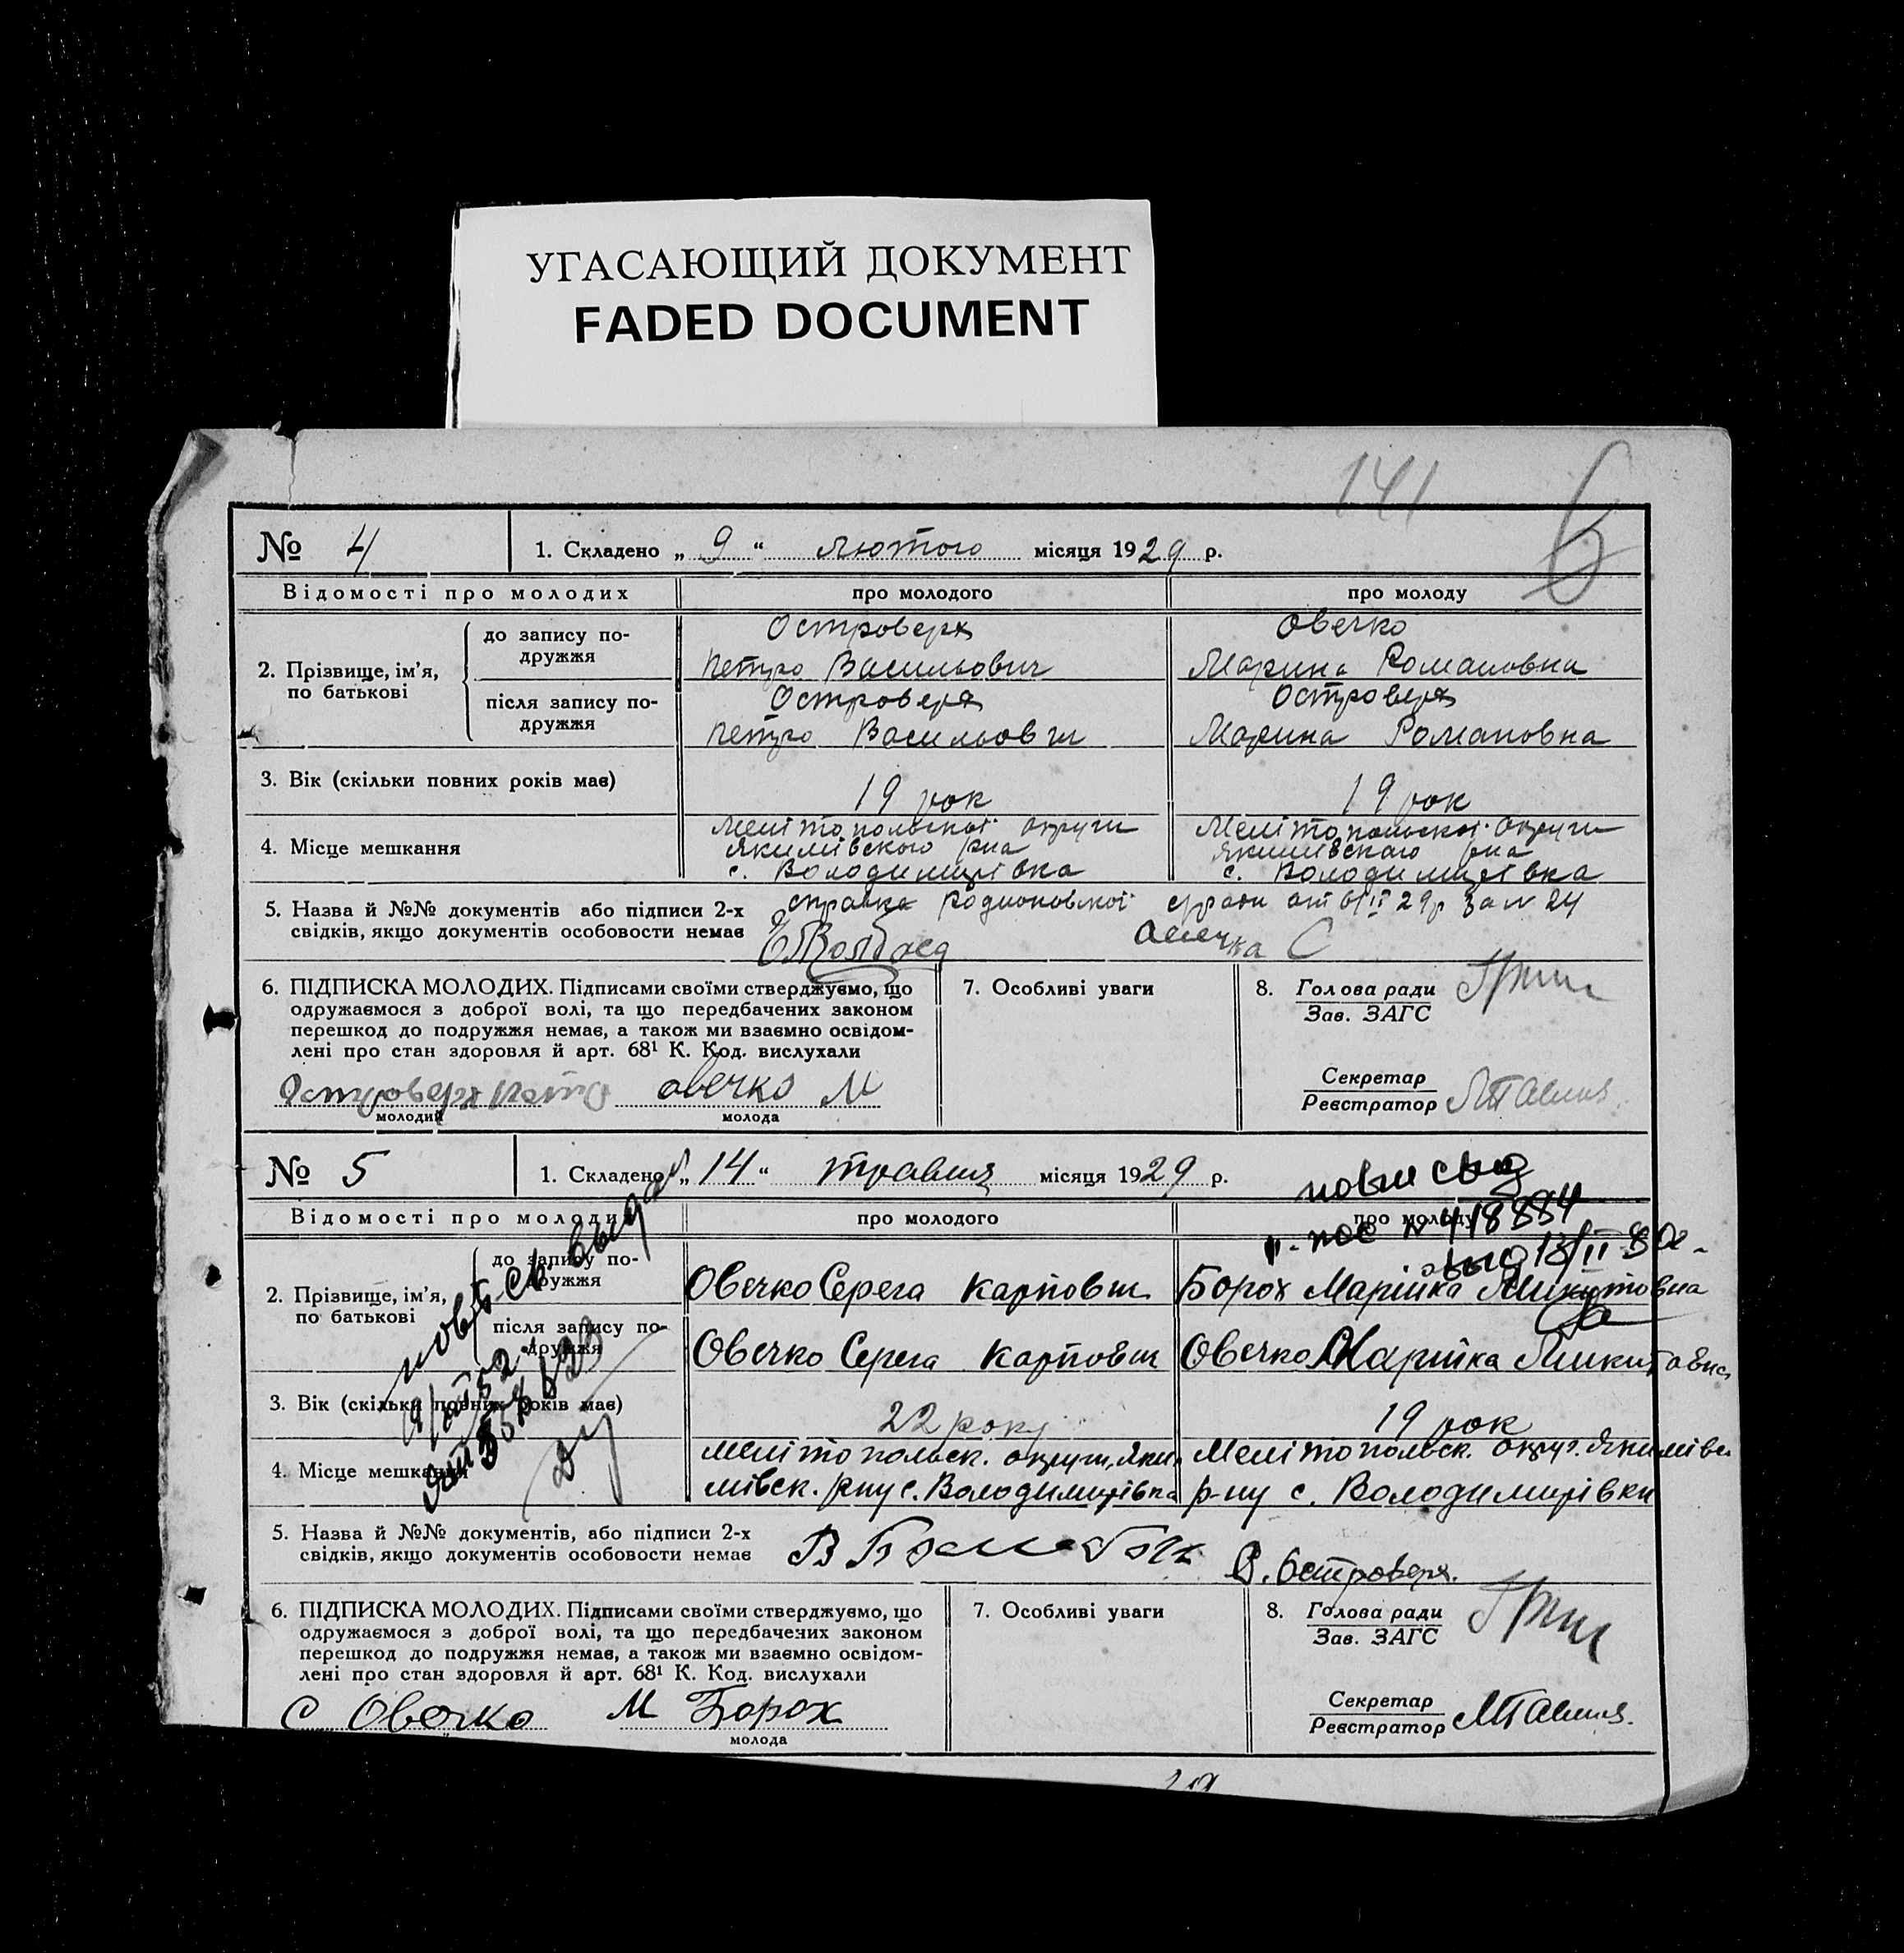 УГАСАЮЩИЙ ДОКУМЕНТ
FADED DOCUMENT
141
6
№ 4 1. Складено „ 9 “ лютого місяця 1929 р.
Відомості про молодих про молодого про молоду
2. Прізвище, ім’я, по батькові
до запису по-
дружжя
Островерх
Петро Васильович
Овечко
Марина Романовна
після запису по-
дружжя
Островерх
Петро Васильович
Островерх
Марина Романовна
3. Вік (скільки повних років має) 19 рок 19 рок
4. Місце мешкання
Мелітопольскої округи
Якимівского рна
с. Володимирівка
Мелітопольскої округи
Якимівского рна
с. Володимирівка
5. Назва й №№ документів або підписи 2-х
свідків, якщо документів особовости немає
справка Родионовської от 6/II 29р за № 24
6. ПІДПИСКА МОЛОДИХ. Підписами своїми стверджуємо, що
одружаємося з доброї волі, та що передбачених законом
перешкод до подружжя немає, а також ми взаємно освідом-
лені про стан здоровля й арт. 68¹ К. Код. вислухали
Островерх Петро овечко М
молодий молода
7. Особливі уваги
8. Голова ради
Зав. ЗАГС
Секретар
Реєстратор
№ 5 1. Складено „ 14 “ травня місяця 1929 р.
Відомості про молодих про молодого про молоду
2. Прізвище, ім’я,
по батькові
до запису по-
дружжя
Овечко Серега Карпович
Борох Марійка Микитовна
після запису по-
дружжя
Овечко Серега Карпович
Овечко Марійка Микитовна
3. Вік (скільки повних років має) 22 року 19 рок
4. Місце мешкання
Мелітопольск. округи, Яки-
мівск. рну с. Володимирівка
Мелітопольск. округ. Якимівск
р-ну с. Володимирівки
5. Назва й №№ документів, або підписи 2-х
свідків, якщо документів особовости немає
Островерх.
6. ПІДПИСКА МОЛОДИХ. Підписами своїми стверджуємо, що
одружаємося з доброї волі, та що передбачених законом
перешкод до подружжя немає, а також ми взаємно освідом-
лені про стан здоровля й арт. 68¹ К. Код. вислухали
С Овечко М Борох
молода
7. Особливі уваги
8. Голова ради
Зав. ЗАГС
Секретар
Реєстратор